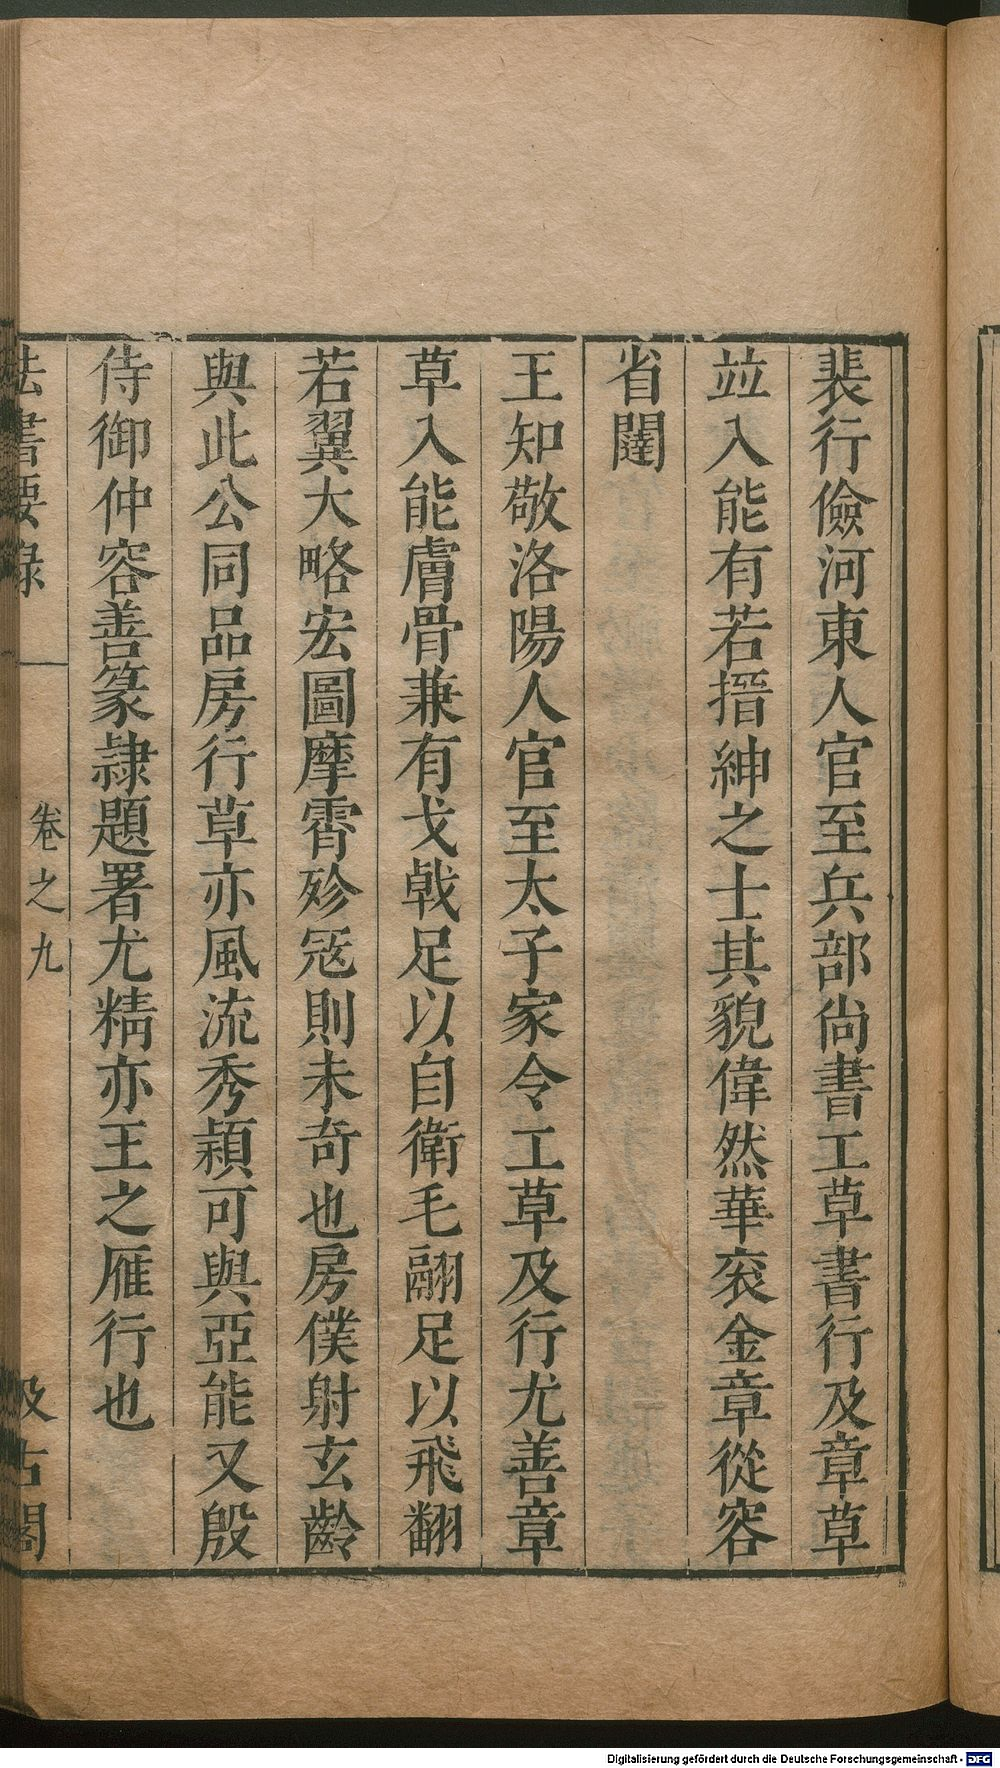 裴行儉河東人官至兵部尚書工草書行及章草
並入能有若搢紳之士其貌偉然華衮金章從容
省闥
王知敬洛陽人官至太子家令工草及行尤善章
草入能膚骨兼有戈戟足以自衛毛翮足以飛翻
若翼大略宏圖摩霄殄寇則未奇也房僕射玄齡
與此公同品房行草亦風流秀頴可與亞能又殷
侍御仲容善篆隷題署尤精亦王之雁行也
法書要錄
卷之九
汲古閣
Digitalisierung gefördert durch die Deutsche Forschungsgemeinschaft - DFG